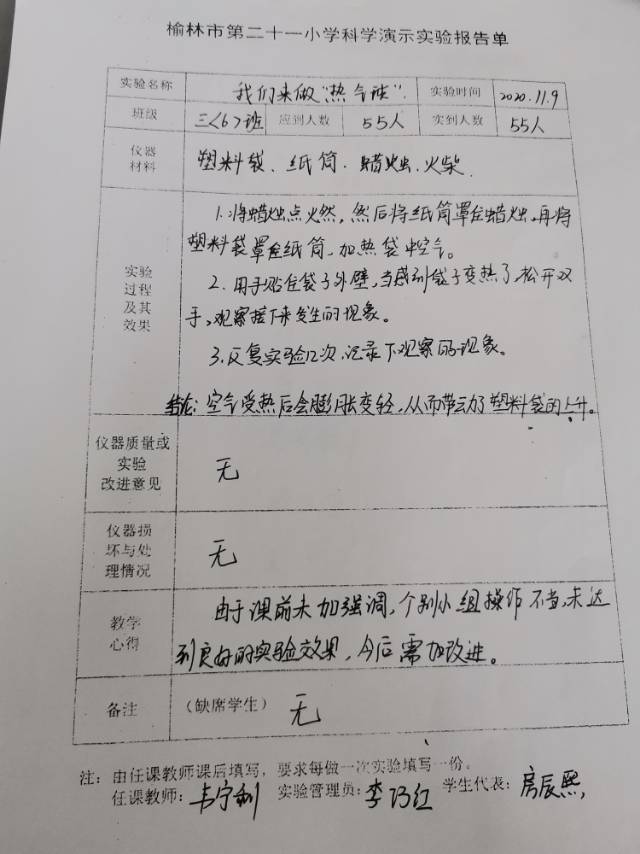 榆林市第二十一小学科学演示实验报告单
实验名称 我们来做"热气球". 实验时间 2020.11.9
班级 三〈6〉班 应到人数 55人 实到人数 55人
仪器
材料
塑料袋、纸筒、蜡烛、火柴.
实验
过程
及其
效果
1.将蜡烛点火然,然后将纸筒罩住蜡烛,再将
塑料袋罩住纸筒,加热袋中空气。
2.用手贴住袋子外壁,当感到袋子变热了,松开双
手,观察接下来发生的现象。
3.反复实验几次,记录下观察的现象。
结论:空气受热后会膨胀变轻,从而带动了塑料袋的上升。
仪器质量或
实验
改进意见
无
仪器损
坏与处
理情况
无
教学
心得
由于课前未加强调,个别小组操作不当,未达
到良好的实验效果,今后需加改进。
备注 (缺席学生) 无
注:由任课教师课后填写,要求每做一次实验填写一份。
任课教师: 实验管理员:李巧红 学生代表:房辰熙